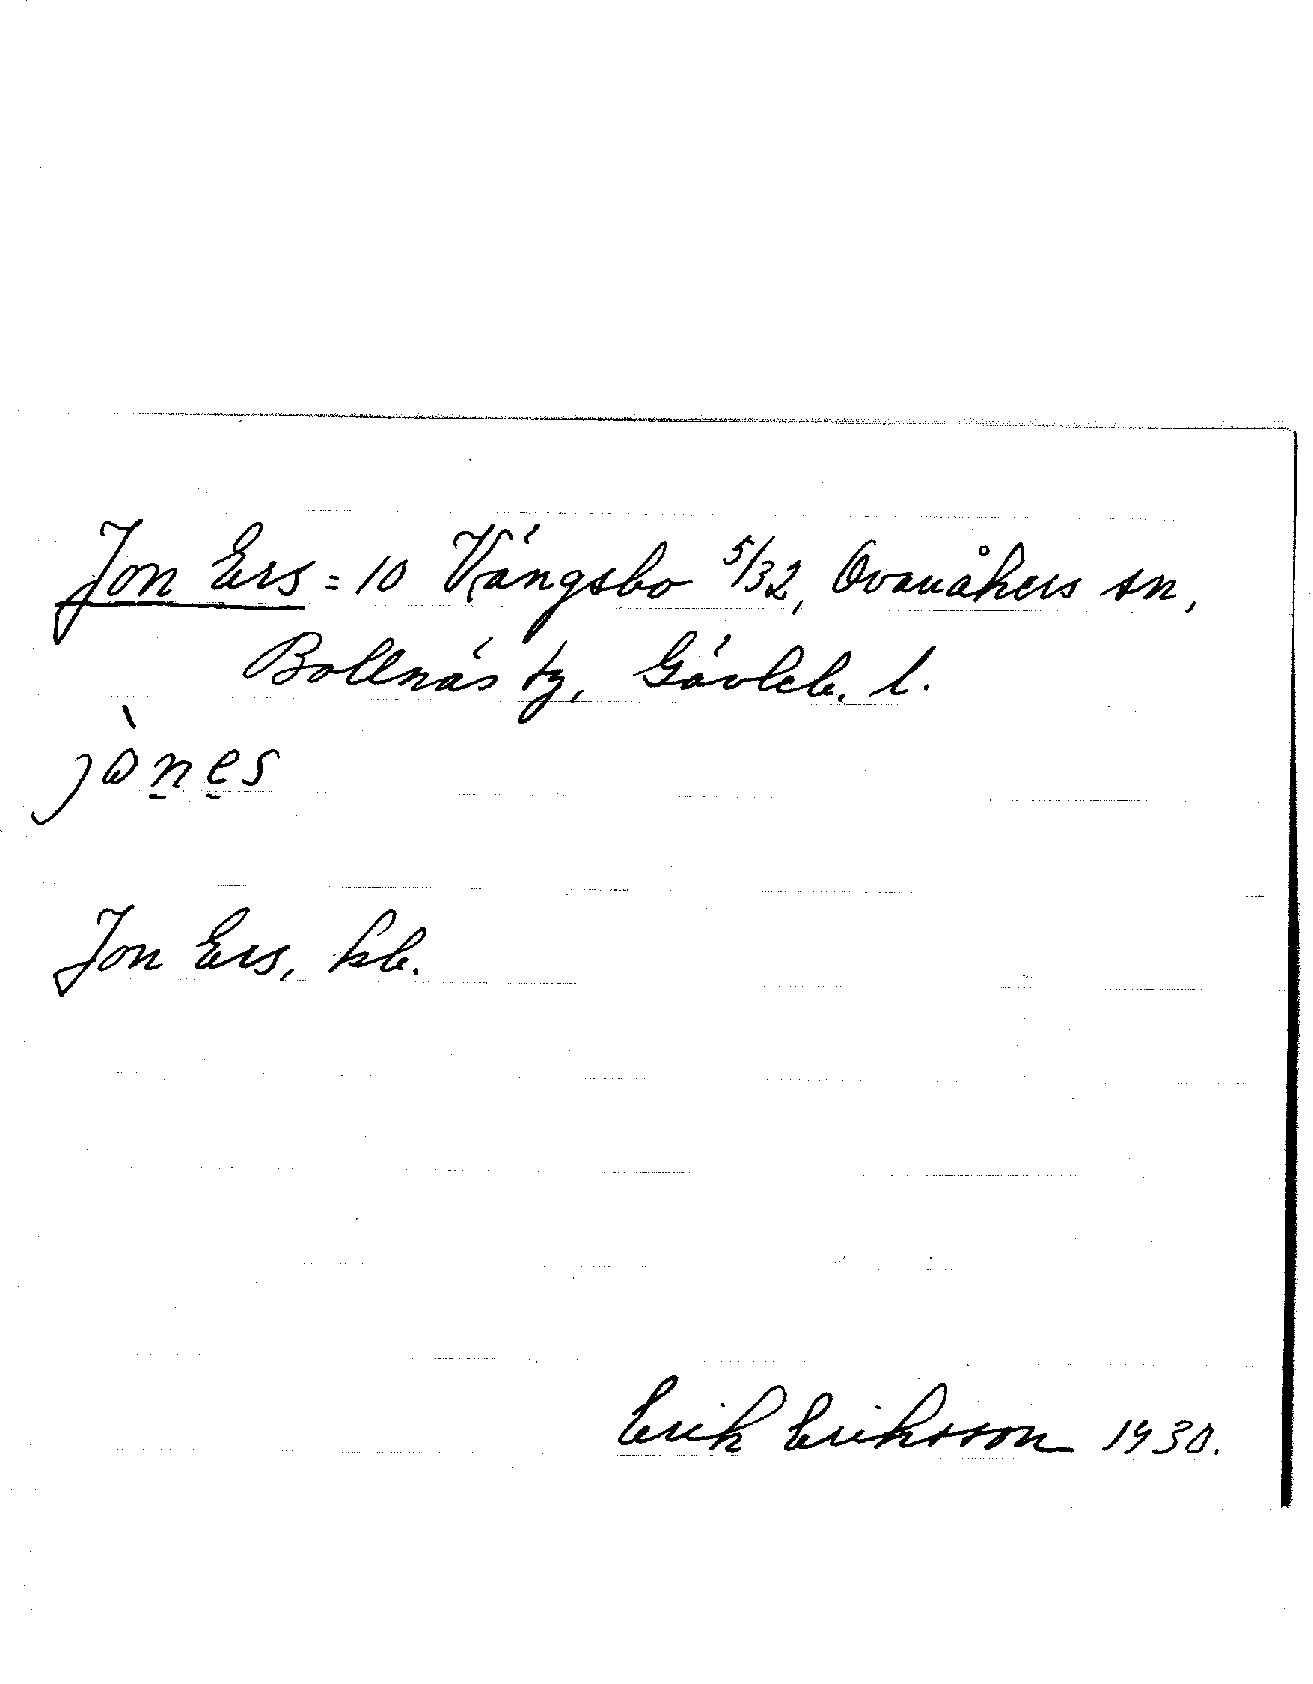 Jon Ers = 10 Vängsbo 5/32, Ovanåkers sn,
Bollnäs tg, Gävleb. l.
jònes
Jon Ers, kb.
Erik Eriksson 1930.